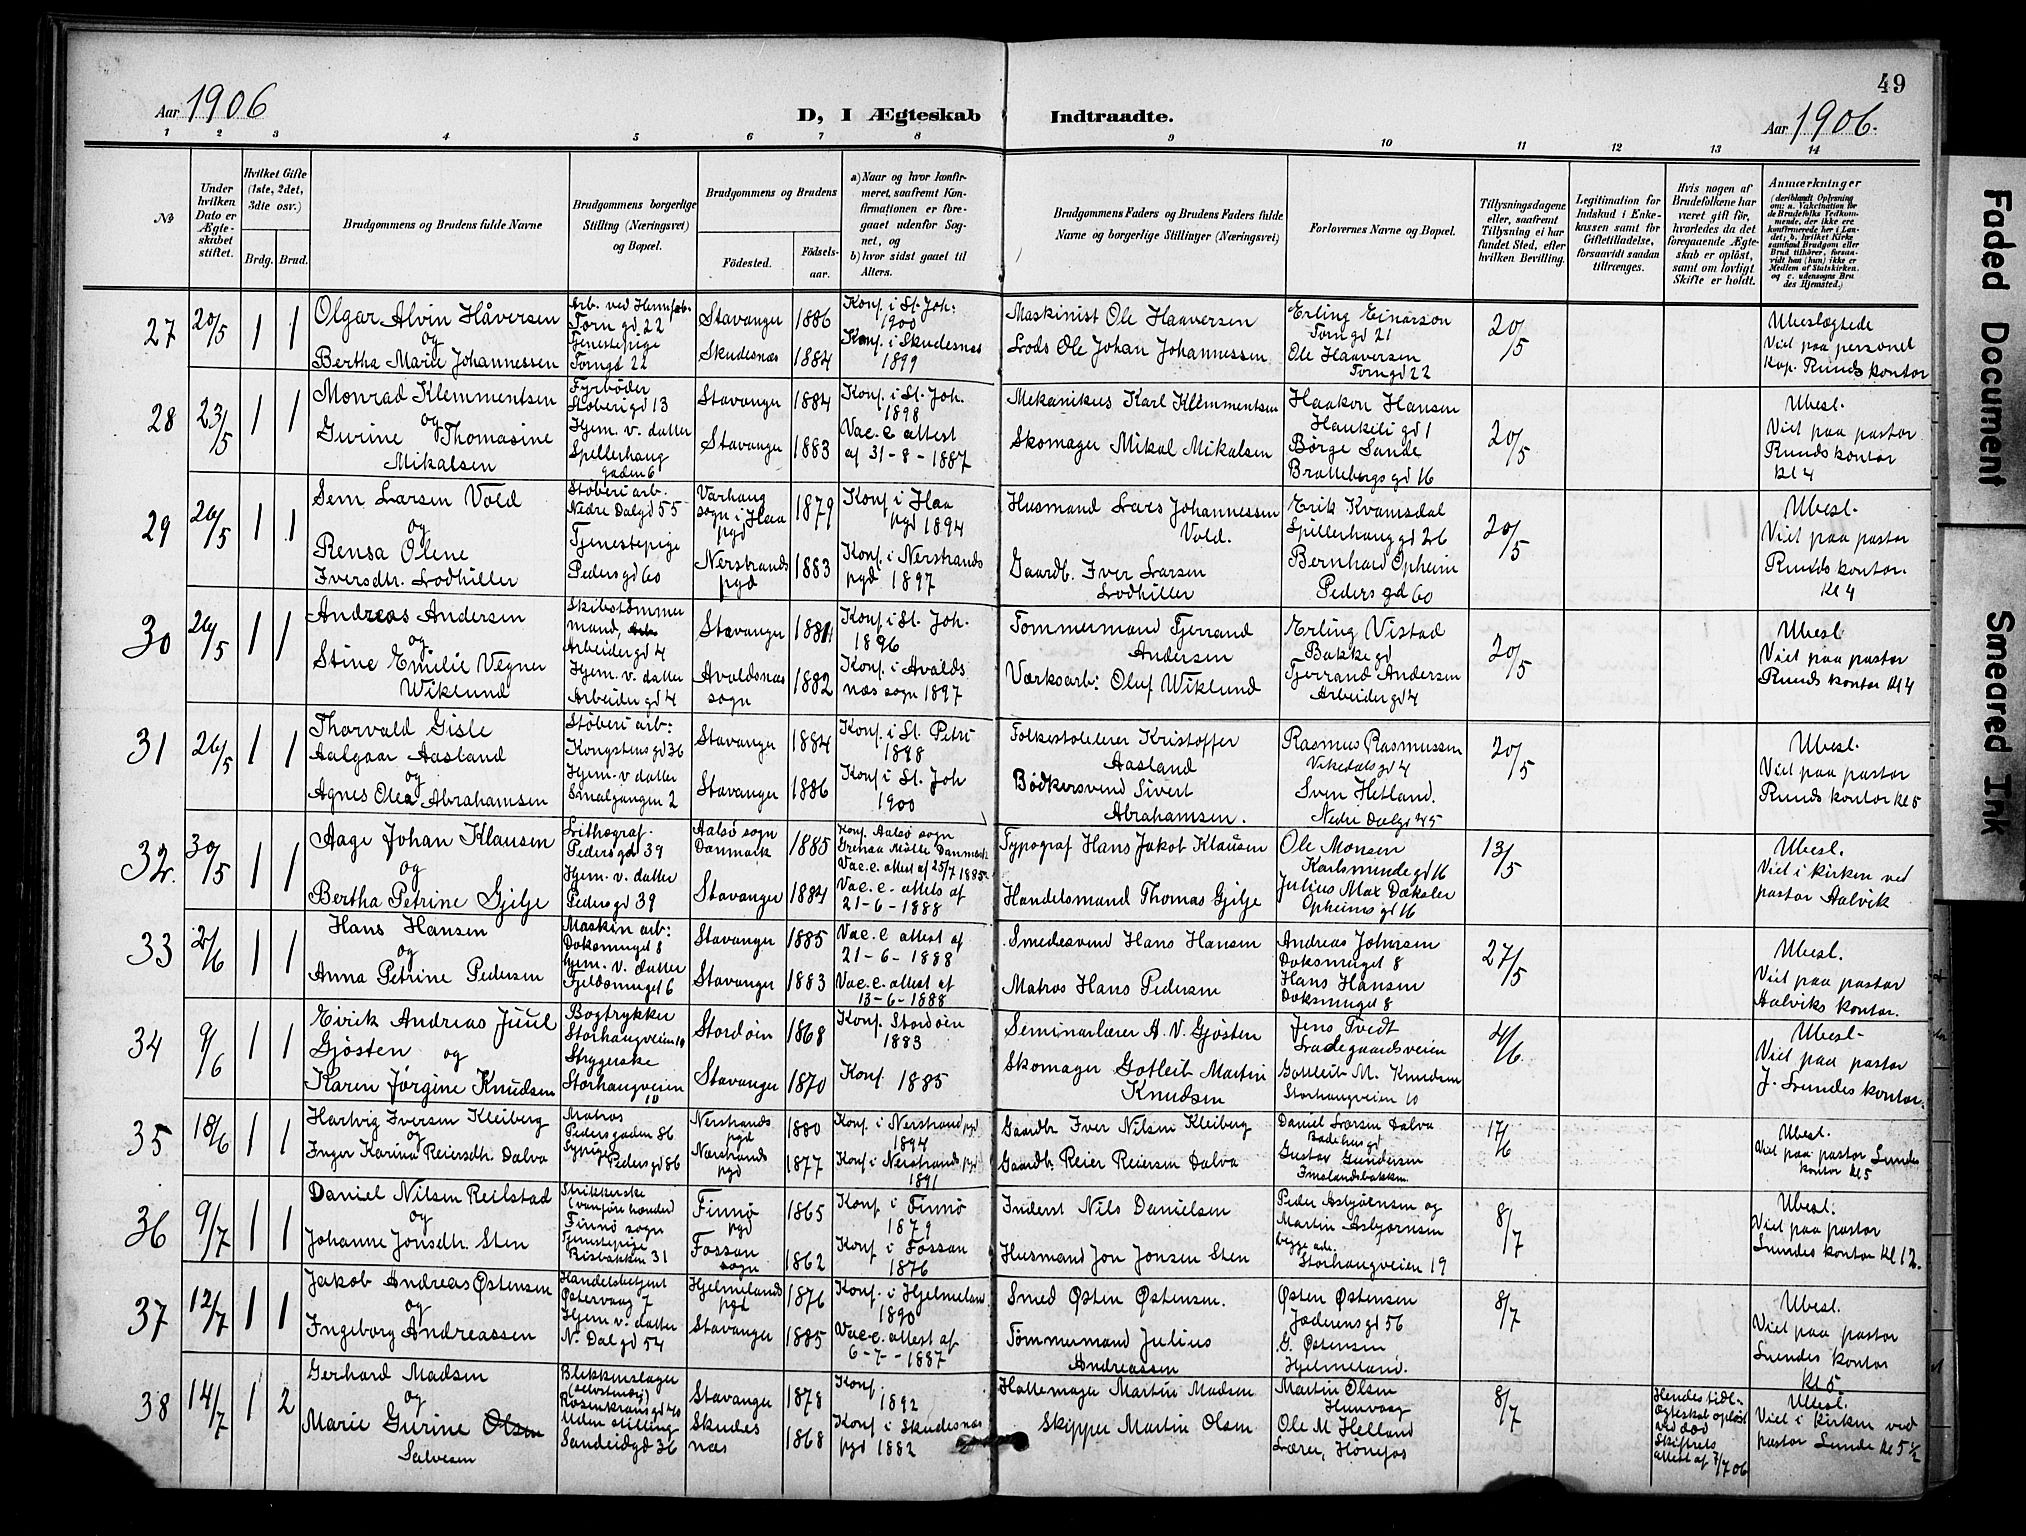 49
Aar 1906
D, I Ægteskab Indtraadte.
Aar 1906.
1 2 3 4 5 6 7 8 9 10 11 12 13 14
№
Under hvilken Dato er Ægteskabet stiftet.
Hvilket Gifte (1ste, 2det, 3die osv.)
Brdg. Brud.
Brudgommens og Brudens fulde Navne
Brudgommens borgerlige Stilling (Næringsvei) og Bopæl.
Brudgommens og Brudens
Fødested.
Fødselsaar.
a) Naar og hvor konfirmeret, saafremt Konfirmationen er foregaaet udenfor Sognet, og
b) hvor sidst gaaet til Alters.
Brudgommens Faders og Brudens Faders fulde Navne og borgerlige Stillinger (Næringsvei)
Forlovernes Navne og Bopæl.
Tillysningsdagene eller, saafremt Tillysning ei har fundet Sted, efter hvilken Bevilling.
Legitimation for Indskud i Enkekassen samt for Giftetilladelse, forsaavidt saadan tiltrænges.
Hvis nogen af Brudefolkene har været gift før, hvorledes da det foregaaende Ægteskab er opløst, samt om lovligt Skifte er holdt.
Anmærkninger
27 20/5 1 1
Olgar Alvin Håversen
og
Bertha Marie Johannessen
Torngd 22
Tjenestepige
Torngd 22
Stavanger 1886
Skudesnæs 1884
Konf. i St. Joh. 1900
Konf. i Skudesnæs 1899
Maskinist Ole Haaversen
Lods Ole Johan Johannessen
Erling Einarson
Torngd 21
Ole Haaversen
Torngd 22
20/5
Ubeslægtede
Viet paa personel
Kap. Runds kontor
28 23/5 1 1
Monrad Klemmentsen
og
Gurine Thomasine
Mikalsen
Fyrbøder
Støberigd 13
Hjem. v. datter
Spilderhaug
gaden 6
Stavanger 1884
Stavanger 1883
Konf. i St. Joh. 1898
Vac. e attest
af 31-8-1887
Mekanikus Karl Klemmentsen
Skomager Mikal Mikalsen
Haakon Hansen
Haukeligd 1
Børge Sande
Brattebergsgd 16
20/5
Ubesl.
Viet paa pastor
Runds kontor
kl 4
29 26/5 1 1
Sem Larsen Vold
og
Rensa Olene
Iversdtr. Lodhiller
Støberiarb.
Nedre Dalgd 55
Tjenestepige
Pedersgd 60
Varhaug
sogn i Haa
pgd 1879
Nerstrands
pgd 1883
Konf i Haa
pgd 1894
Konf. i Nerstrands
pgd 1897
Husmand Lars Johannessen
Vold.
Gaardb. Iver Larsen
Lodhiller
Erik Kvamsdal
Spilderhauggd 26
Bernhard Opheim
Pedersgd 60
20/5
Ubesl.
Viet paa pastor
Runds kontor.
Kl 4
30 26/5 1 1
Andreas Andersen
og
Stine Emilie Vegner
Wiklund
Skibstømmer
mand,
Arbeidergd 4
Hjem. v. datter
Arbeidergd 4
Stavanger 1881
Avaldsnæs
sogn 1882
Konf. i St. Joh.
1896
Konf. i Avalds
næs sogn 1897
Tømmermand Tjerrand
Andersen
Værksarb: Oluf Wiklund
Erling Vistad
Bakkegd
Tjerrand Andersen
Arbeidergd 4
20/5
Ubesl
Viet paa pastor
Runds kontor kl 4
31 26/5 1 1
Thorvald Gisle
Aalgaar Aasland
og
Agnes Olea Abrahamsen
Støberiarb:
Kongstensgd 36
Hjem. v datter
Smalgangen 2
Stavanger 1884
Stavanger 1886
Konf. i St. Petri
1898
Konf. i St. Joh
1900
Kristoffer
Aasland
Bødkersvend Sivert
Abrahamsen.
Rasmus Rasmussen
Vikedalsgd 4
Sven Hetland.
Nedre Dalgd 45
20/5
Ubesl.
Viet paa pastor
Runds kontor kl 5
32. 30/5 1 1
Aage Johan Klausen
og
Bertha Petrine Gilje
Lithograf.
Pedersgd 39
Hjem. v. datter
Pedersgd 39
Aalsø sogn
Danmark 1885
Stavanger 1884
Konf. Aalsø sogn
Grenaa Mølle Danmark
Vac. e. attest af 25/7 1885
Vac. e. attets af
21-6-1888
Typograf Hans Jakob Klausen
Handelsmand Thomas Gilje
Ole Monsen
Karlsmindegd 16
Julius Max Dæksler
Opheimsgd 16
13/5
Ubesl.
Viet i kirken ved
pastor Aalvik
33 2/6 1 1
Hans Hansen
og
Anna Petrine Pedersen
Maskinarb:
Doksmuget 8
Hjem. v. datter
Fjeldsmuget 6
Stavanger 1885
Stavanger 1883
Vac. e attest af
21-6-1888
Vac. e. attest af
13-6-1888
Smedesvend Hans Hansen
Matros Hans Pedersen
Andreas Johnsen
Doksmuget 8
Hans Hansen
Doksmuget 8
27/5
Ubesl.
Viet paa pastor
Aalviks kontor.
34 9/6 1 1
Eirik Andreas Juul
Gjøsten og
Karen Jørgine Knudsen
Bogtrykker
Storhaugveien 10
Strygerske
Storhaugveien
10
Stordøen 1868
Stavanger 1870
Konf. Stordøen
1883
Konf 1885
Seminarlærer A. V. Gjøsten
Skomager Gotleib Martin
Knudsen
Jens Tvedt
Ladegaardsveien
Gottleib M. Knudsen
Storhaugveien 10
4/6
Ubesl-
Viet paa pastor
J. Lundes kontor.
35 18/6 1 1
Hartvig Iversen Kleiberg
og
Inger Karina Reiersdtr. Dalva
Matros
Pedersgaden 86
Sypige
Pedersgd 86
Nerstrands
pgd 1880
Nærstrands
pgd 1877
Konf. i Nerstrand pgd
1894
Konf i Nerstrands pgd
1891
Gaardbr Iver Nilsen Kleiberg
Gaardb. Reier Reiersen Dalva
Daniel Larsen Dalva
Badehusgd
Gustav Gundersen
Imslandsbakken
17/6
Ubesl.
Viet paa pastor Lundes
kontor kl 5
36 9/7 1 1
Daniel Nilsen Reilstad
og
Johanne Jonsdtr. Sten
Finnø sogn
Tjenestepige
Risbakken 31
Finnø
pgd 1865
Fossan
sogn 1862
Konf i Finnø
1879
Konf i Fossan
1876
Inderst Nils Danielsen
Husmand Jon Jonsen Sten
Peder Asbjørnsen og
Martin Asbjørnsen
begge arb.
Storhaugveien 19
8/7
Ubesl:
Viet paa pastor
Lundes kontor kl 12.
37 12/7 1 1
Jakob Andreas Østensen
og
Ingeborg Andreassen
Handelsbetjent
Østervaag 7
Hjem v. datter
N. Dalgd 54
Hjelmelands
pgd 1876
Stavanger 1885
Konf. i Hjelmeland
1890
Vac. e. attest af
6-7-1887
Smed Østen Østensen.
Tømmermand Julius
Andreassen
Østen Østensen
Jæderensgd 56
G. Østensen
Hjelmeland.
8/7
Ubesl.
Viet paa pastor
Lundes kontor
kl 5
38 14/7 1 2
Gerhard Madsen
og
Marie Gurine Olsen
Salvesen
Blikkenslager
(selvstændig)
Rosenkransgd 40
Uden stilling
Sandeidgd 36
Stavanger 1878
Skudes
næs 1868
Konf
1892
Konf. i Skudesnæs
pgd 1882
Hattemager Martin Madsen
Skipper Martin Olsen
Martin Olsen
Hunvaag
Ole M Helland
Lærer, Hønefos
8/7
Hendes tidl.
Ægteskab opløst
ved død
Skifterets
attest af 7/7 06
Ubesl.
Viet i kirken ved
pastor Lunde kl 5 1/2
Faded Document
Smeared Ink